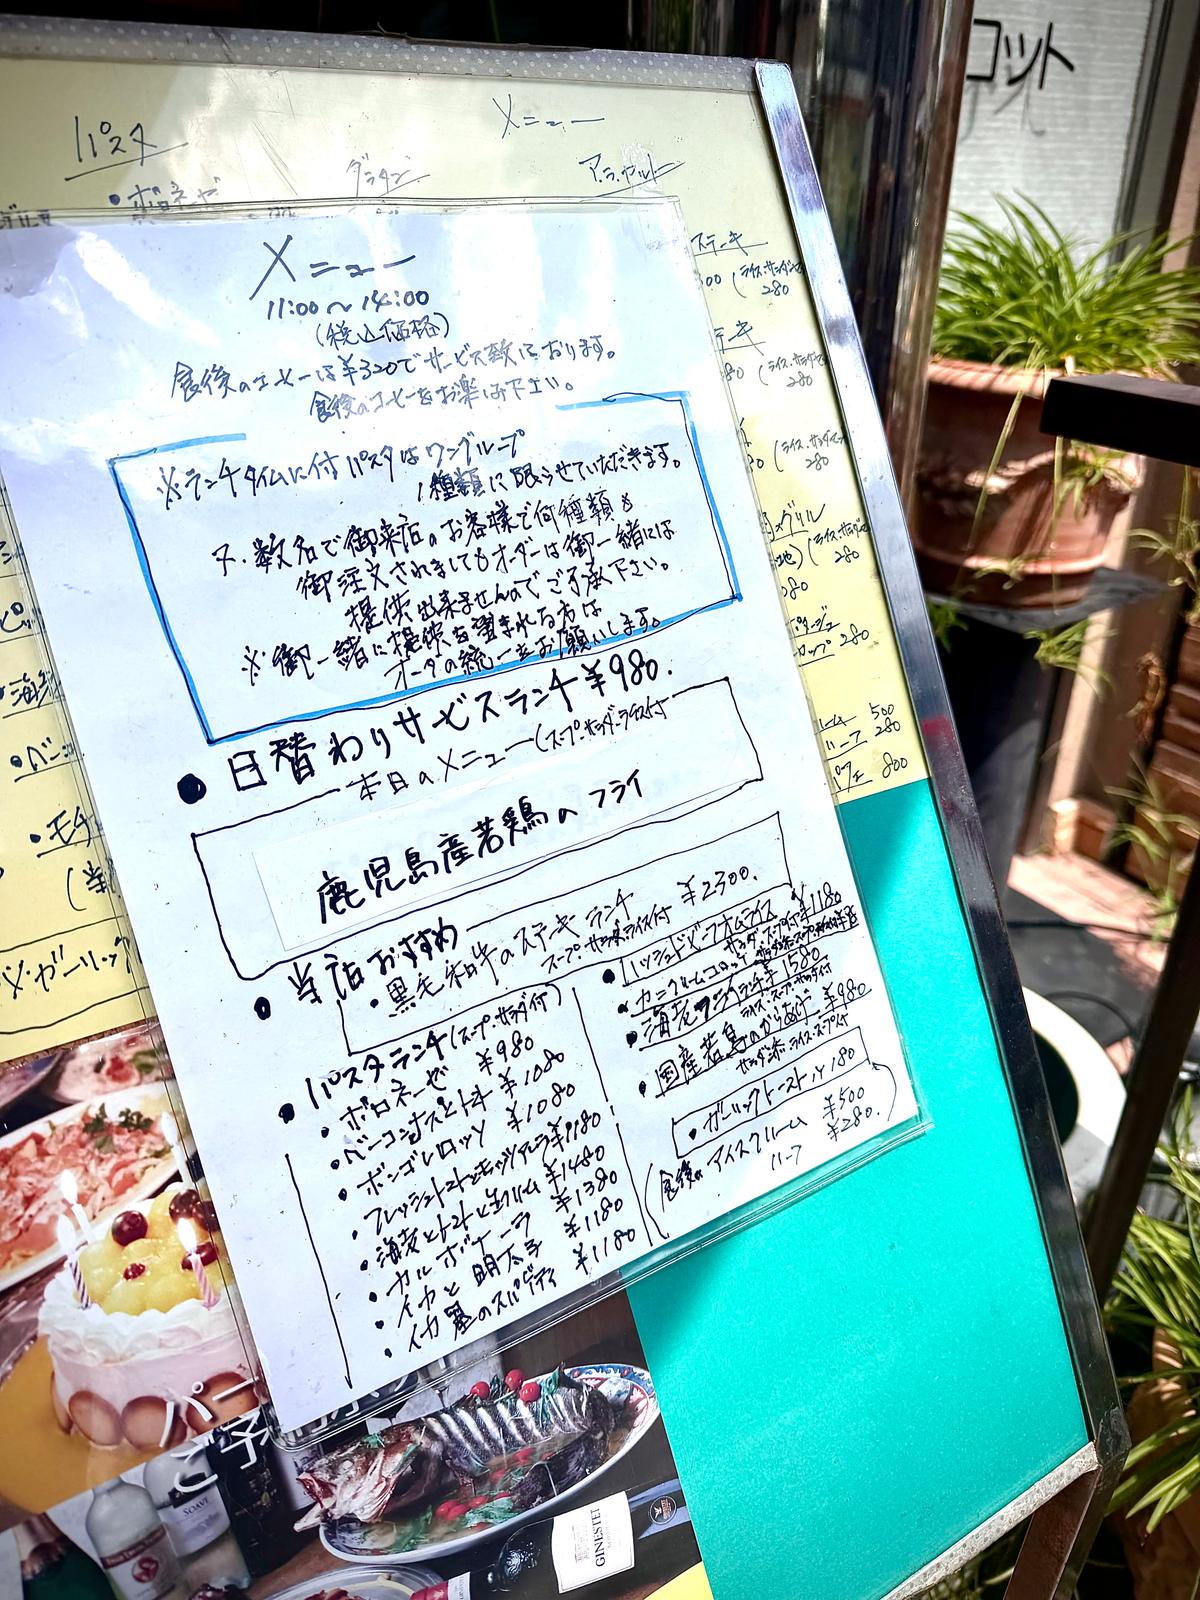 コット
メニュー
パスタ
グラタン
アラカルト
・ボロネーゼ
ステーキ
280
280
280
280
280
500
280
パフェ 800
メニュー
11:00～14:00
(税込価格)
食後のコーヒーは¥320でサービス致しております。
食後のコーヒーをお楽しみ下さい。
※ランチタイムに付パスタはワングループ
1種類に限らせていただきます。
又、数名で御来店のお客様で何種類も
御注文されましてもオーダーは御一緒には
提供出来ませんのでご了承下さい。
※御一緒に提供を望まれる方は
オーダの統一をお願いします。
●日替わりサービスランチ¥980.
本日のメニュー(スープ・サラダ・ライス付
鹿児島産若鶏のフライ
●当店おすすめ
・黒毛和牛のステーキランチ ¥2300.
スープ サラダ ライス付
●パスタランチ(スープ・サラダ付)
・ボロネーゼ ¥980
・ベーコンナスとトマト ¥1080
・ボンゴレロッソ ¥1080
・フレッシュトマトとモッツァレラ¥1180
・海老とトマトと生クリーム ¥1480
・カルボナーラ ¥1380
・イカと明太子 ¥1180
・イカ墨のスパゲティ ¥1180
●ハッシュドビーフオムライス ¥1180
サラダ・スープ付
・カニクリームコロッケ
・海老フライランチ¥1580
ライス・スープ・サラダ付
・国産若鳥のからあげ ¥980
サラダ添・ライス・スープ付
・ガーリックトースト 1/2 180
(食後の アイスクリーム ¥500
ハーフ ¥280.
SOAVE
GINESTET